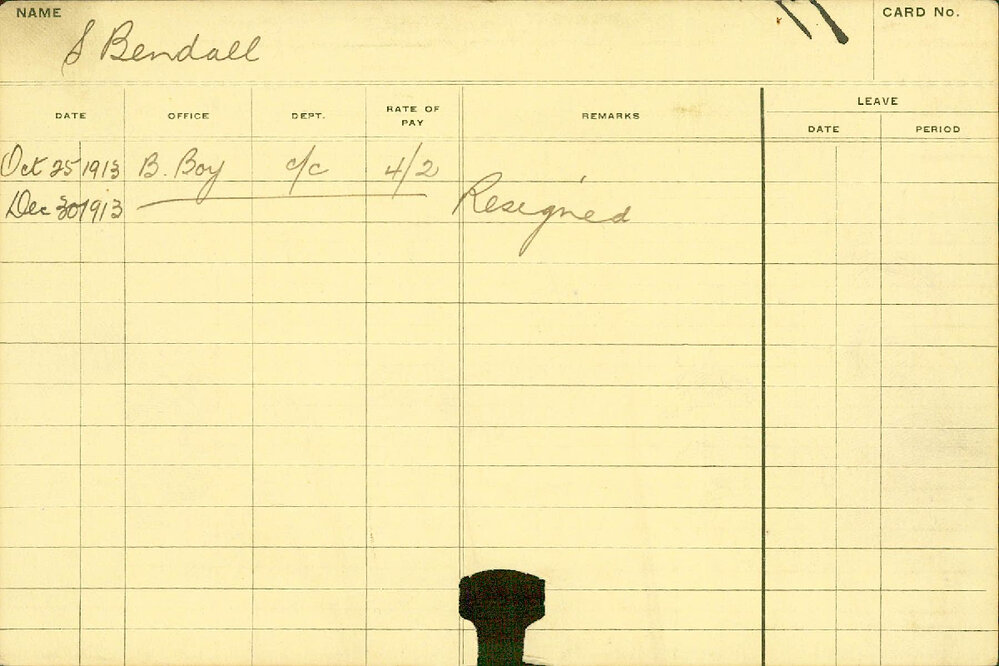 NAME
S Bendall
CARD No.
DATE OFFICE DEPT. RATE OF PAY REMARKS LEAVE
DATE PERIOD
Oct 25 1913 B. Boy c/c 4/2
Dec 30 1913 Resigned